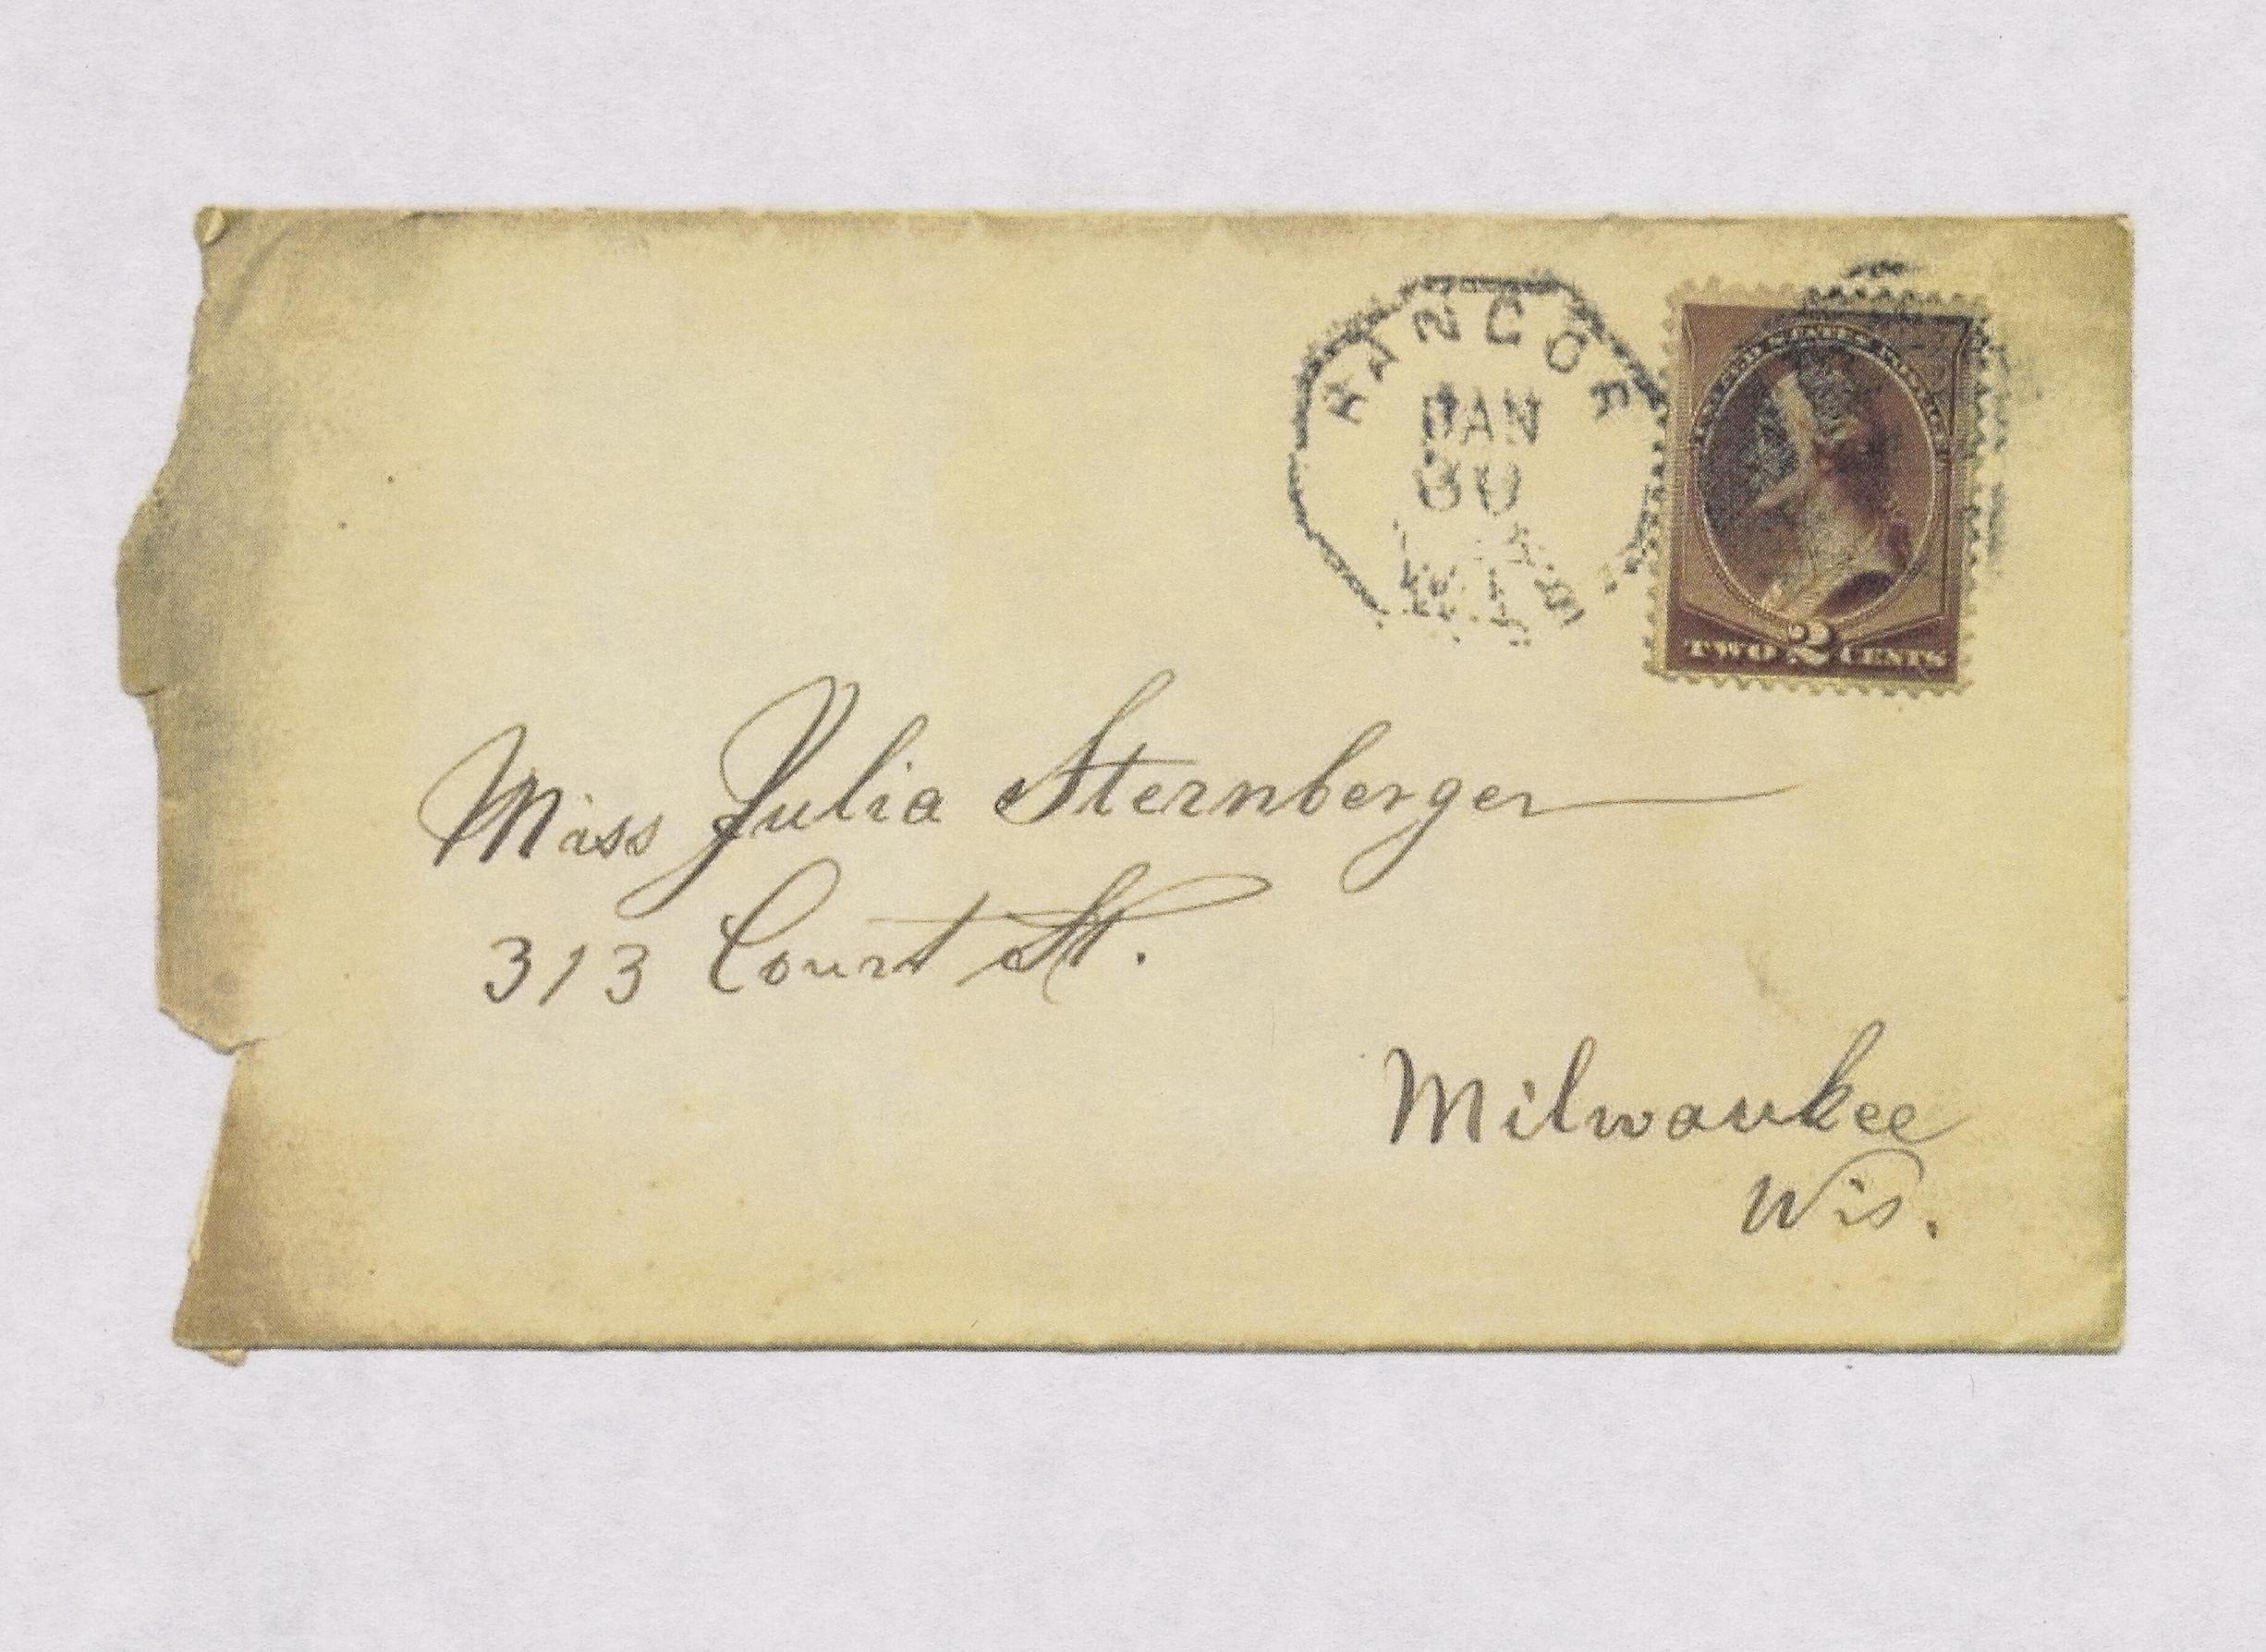 BANGOR
JAN
30
WIS
UNITED STATES POSTAGE
TWO 2 CENTS
Miss Julia Sternberger
313 Court St.
Milwaukee
Wis.